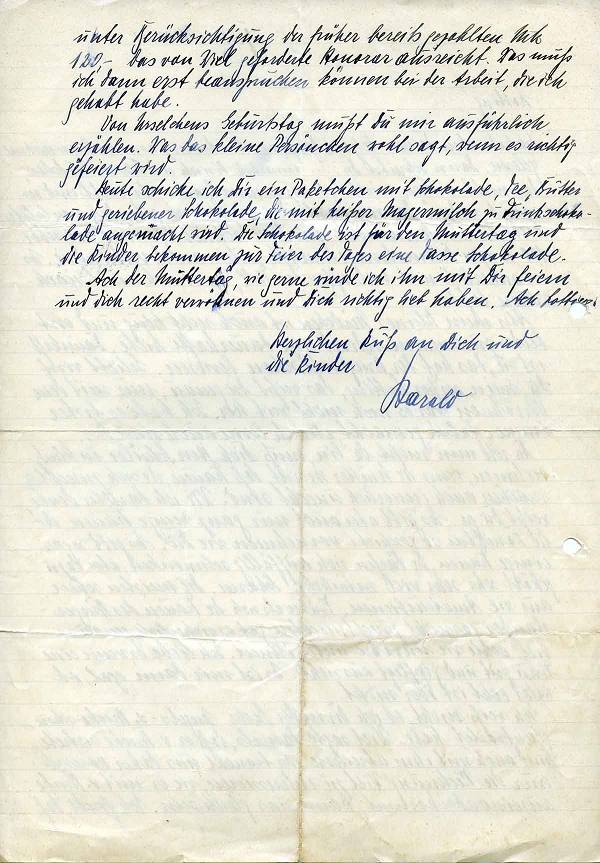 unter Berücksichtigung der früher bereits gezahlten Mk
120,- das von Wiel geforderte Honorar ausreicht. Das muß
ich dann erst beanspruchen können bei der Arbeit, die ich
gehabt habe.
Von Urselchens Geburtstag mußt Du mir ausführlich
erzählen. Was das kleine Persönchen wohl sagt, wenn es richtig
gefeiert wird.
Heute schicke ich Dir ein Paketchen mit Schokolade, Tee, Butter
und geriebener Schokolade, die mit heißer Magermilch zu Trinkschoko-
lade angemacht wird. Die Schokolade ist für den Muttertag und
die Kinder bekommen zur Feier des Tages eine Tasse Schokolade.
Ach der Muttertag, wie gerne würde ich ihn mit Dir feiern
und dich recht verwöhnen und Dich richtig lieb haben. Ach
Herzlichen Kuß an Dich und
die Kinder
Harald